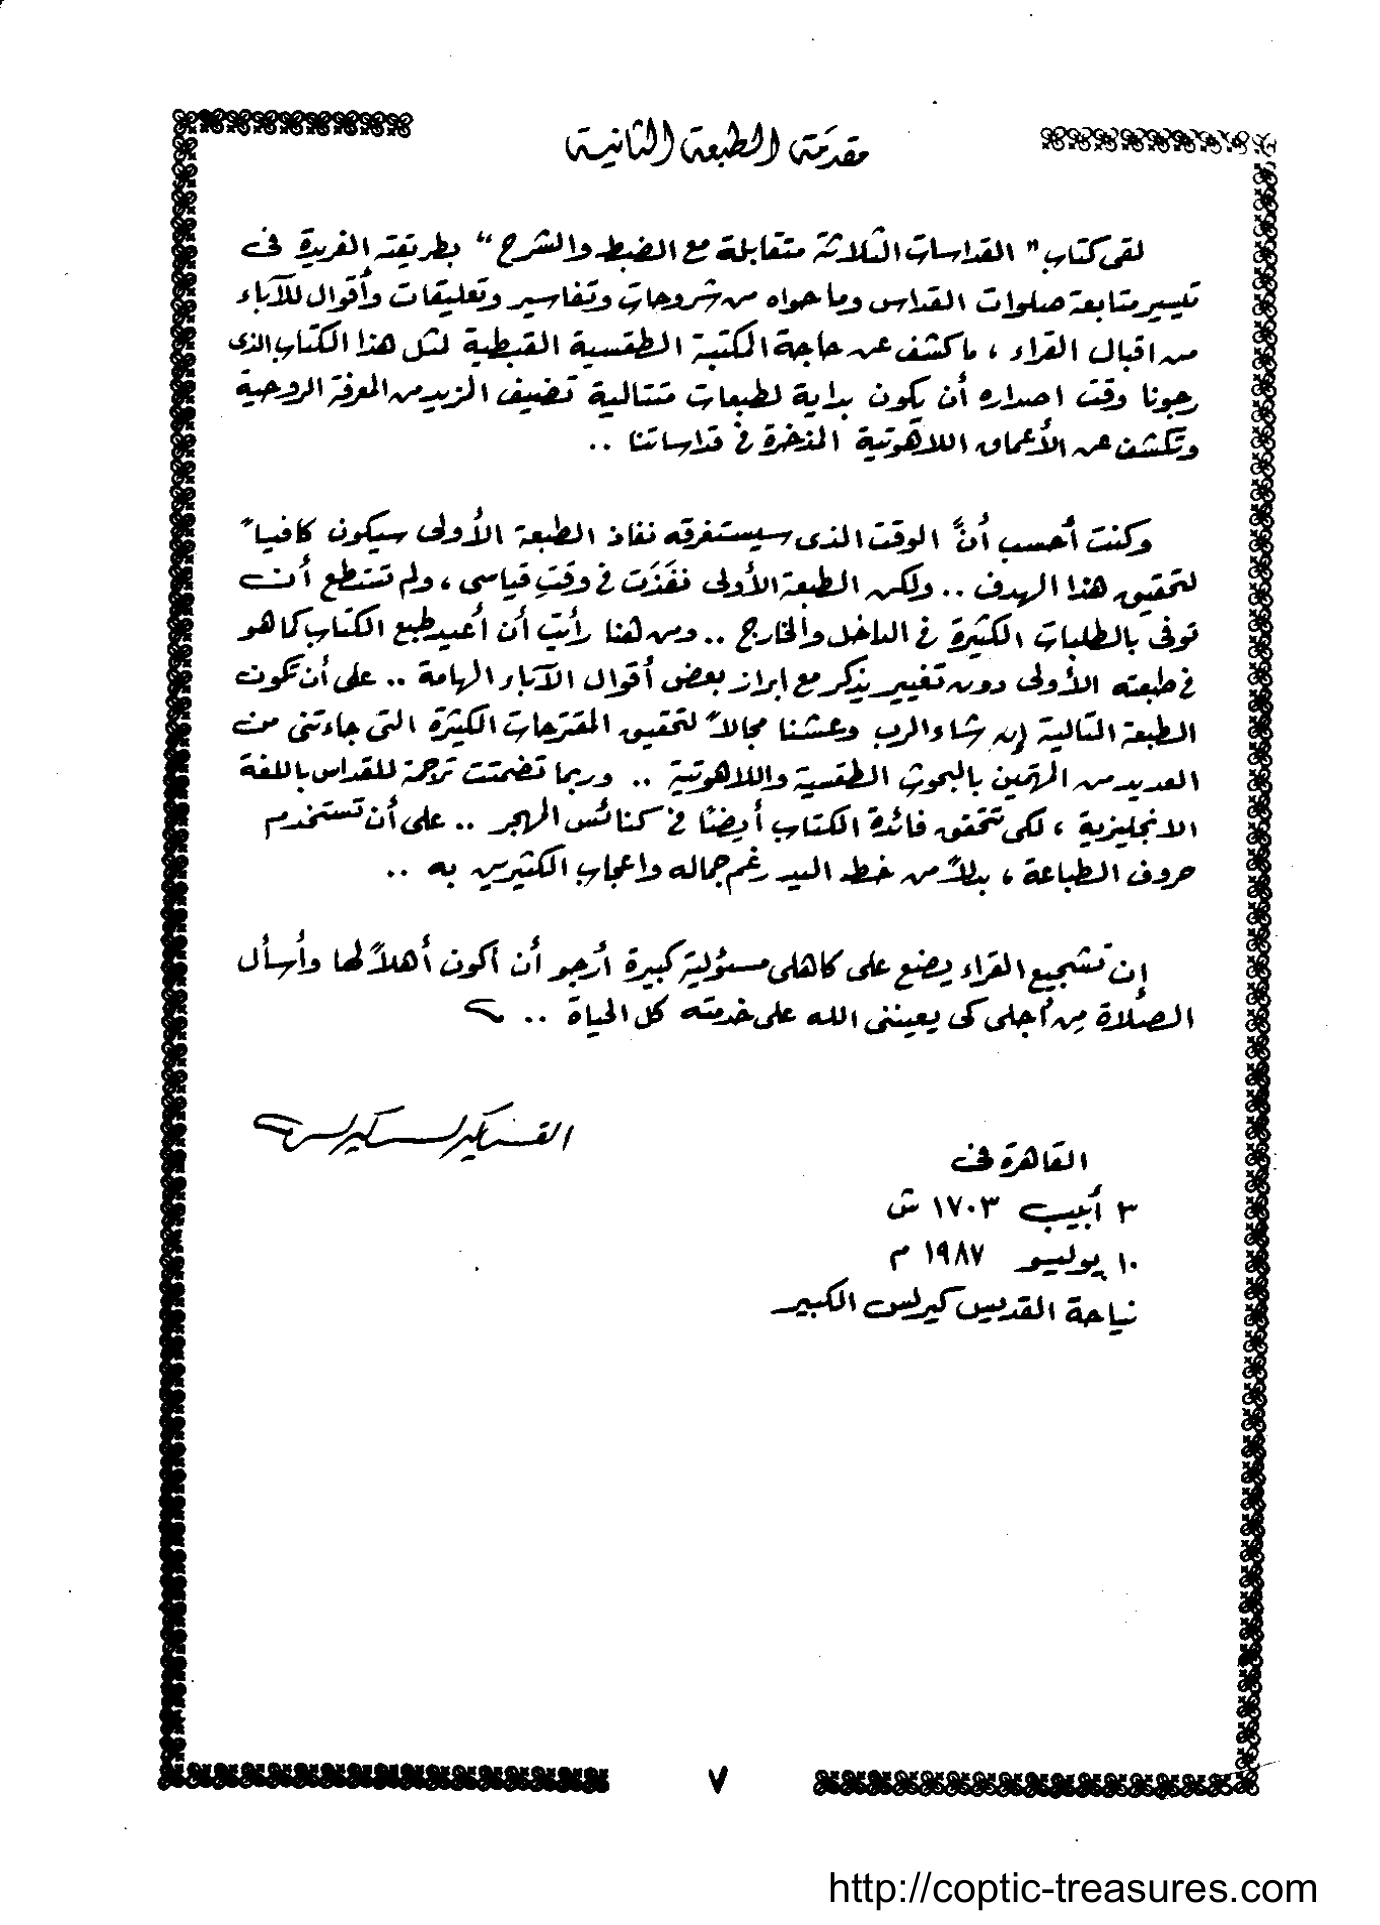 مقدمة الطبعة الثانية
لقى كتاب " القداسات الثلاثة متقابلة مع الضبط والشرح " بطريقته الفريدة فى
تيسير متابعة صلوات القداس وما حواه من شروحات وتفاسير وتعليقات وأقوال للآباء
من اقبال القراء ، ما كشف عن حاجة المكتبة الطقسية القبطية لمثل هذا الكتاب الذى
رجونا وقت اصداره أن يكون بداية لطبعات متتالية تضيف المزيد من المعرفة الروحية
وتكشف عن الأعماق اللاهوتية المذخرة فى قداساتنا ..
وكنت أحسب أنَّ الوقت الذى سيستغرقه نفاذ الطبعة الأولى سيكون كافياً
لتحقيق هذا الهدف .. ولكن الطبعة الأولى نفَذَت فى وقتٍ قياسى ، ولم تستطع أن
توفى بالطلبات الكثيرة فى الداخل والخارج .. ومن هنا رأيت أن أعيد طبع الكتاب كما هو
فى طبعته الأولى دون تغيير يذكر مع ابراز بعض أقوال الآباء الهامة .. على أن تكون
الطبعة التالية إن شاء الرب وعشنا مجالاً لتحقيق المقترحات الكثيرة التى جاءتنى من
العديد من المهتمين بالبحوث الطقسية واللاهوتية .. وربما تضمنت ترجمة للقداس باللغة
الانجليزية ، لكى تتحقق فائدة الكتاب أيضًا فى كنائس المهجر .. على أن تستخدم
حروف الطباعة ، بدلاً من خط اليد رغم جماله واعجاب الكثيرين به ..
إن تشجيع القراء يضع على كاهلى مسئولية كبيرة أرجو أن أكون أهلاً لها وأسأل
الصلاة مِن أجلى كى يعيننى الله على خدمته كل الحياة ..
القس كيرلس كيرلس
القاهرة فى
٣ أبيب ١٧٠٣ ش
١٠ يوليو ١٩٨٧ م
نياحة القديس كيرلس الكبير
٧
http://coptic-treasures.com